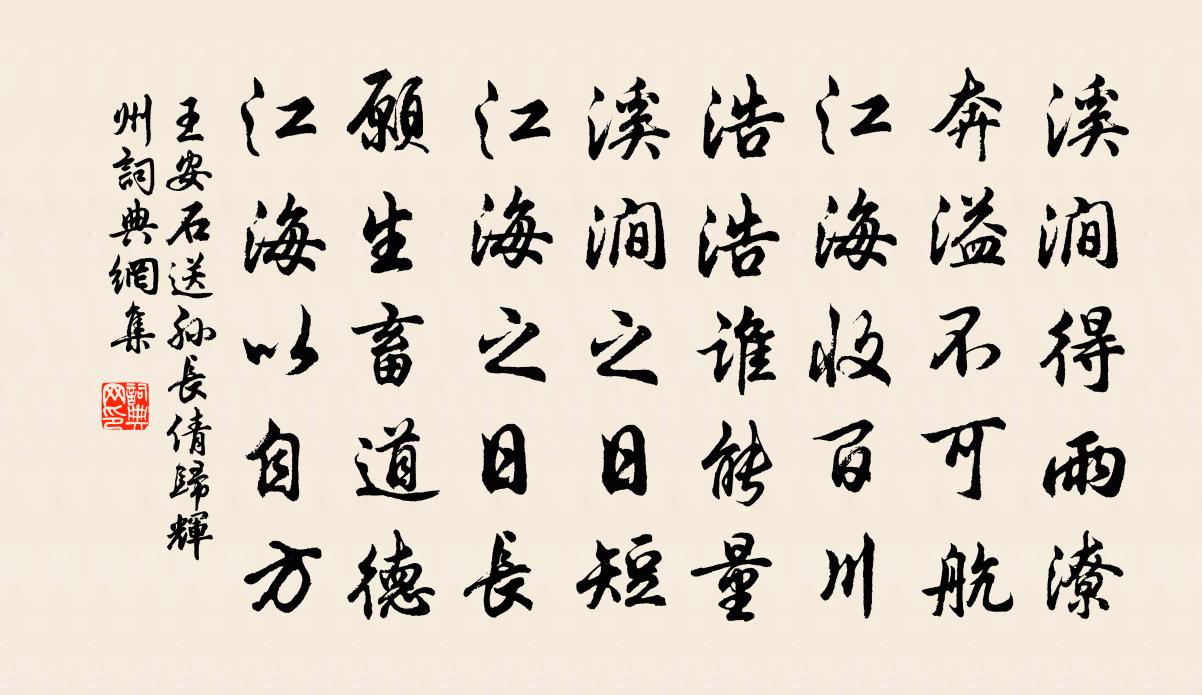 溪澗得雨潦
奔溢不可航
江海收百川
浩浩誰能量
溪澗之日短
江海之日長
願生畜道德
江海以自方
王安石送孙長倩歸輝
州詞典網集
詞典
网印